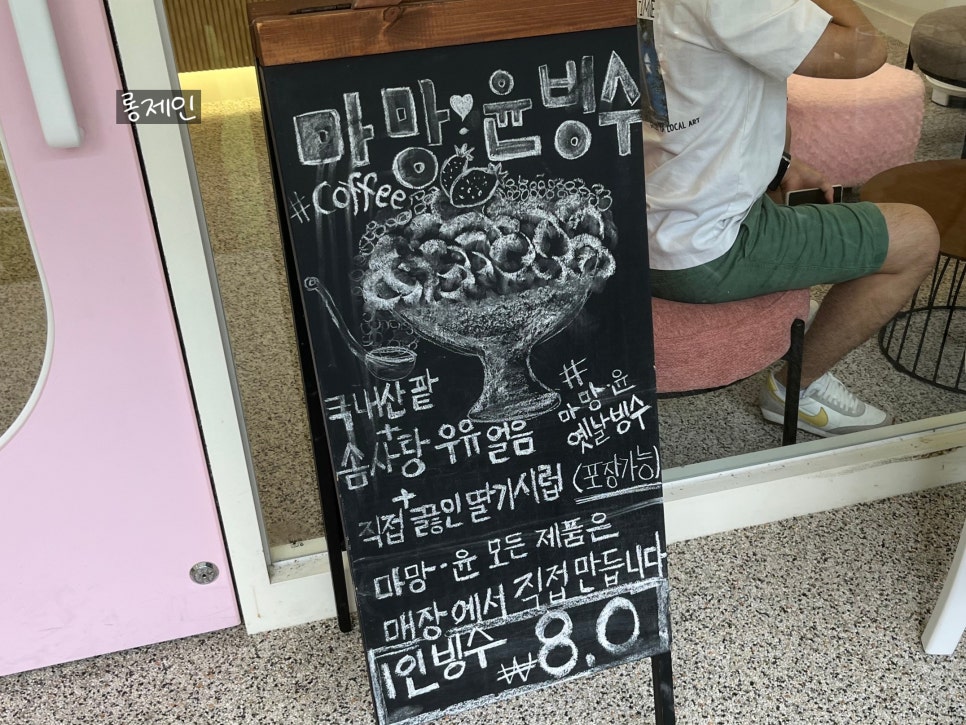 롱제인
마망·윤 빙수
#coffee
국내산 팥
+
솜사탕 우유얼음
#
마망·윤
옛날빙수
+
직접 끓인 딸기시럽 (포장가능)
마망·윤 모든 제품은
매장에서 직접 만듭니다
1인빙수 ₩8.0
LOCAL ART